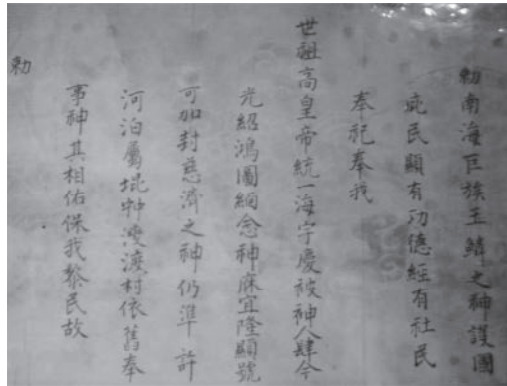 勅南海巨族玉鱗之神護國
庇民顯有功德經有社民
奉祀奉我
世祖高皇帝統一海宇慶被神人肆今
光紹鴻圖緬念神庥宜隆顯號
可加封慈濟之神仍準許
河泊屬渡村依舊奉
事神其相佑保我黎民故
勅